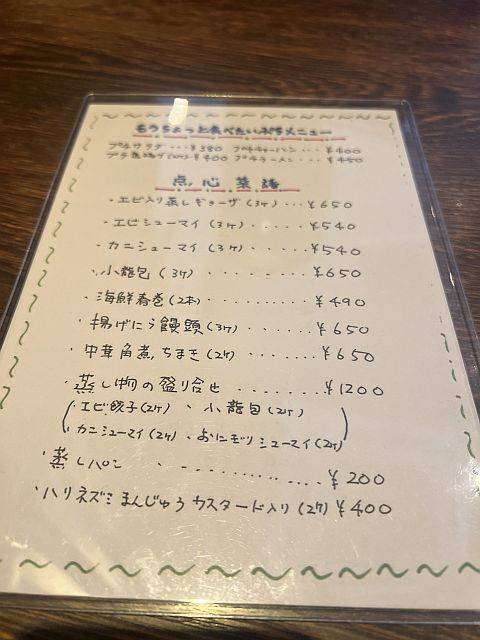 もうちょっと食べたいプチメニュー
プチサラダ・・・¥380 プチチャーハン・・¥400
プチ唐揚げ(2ケ)・¥400 プチラーメン・・¥450
点心菜譜
・エビ入り蒸しギョーザ(3ケ)・・・¥650
・エビシューマイ(3ケ)・・・・・¥540
・カニシューマイ(3ケ)・・・・・¥540
・小籠包(3ケ)・・・・・・・¥650
・海鮮春巻(2本)・・・・・・・¥490
・揚げにら饅頭(3ケ)・・・・・¥650
・中華角煮ちまき(2ケ)・・・・・¥650
・蒸し物の盛り合せ・・・・・・・¥1200
(・エビ餃子(2ケ)、小籠包(2ケ)
・カニシューマイ(2ケ)・おにモリシューマイ(2ケ))
・蒸しパン・・・・・・・・・・・¥200
・ハリネズミまんじゅうカスタード入り(2ケ)¥400